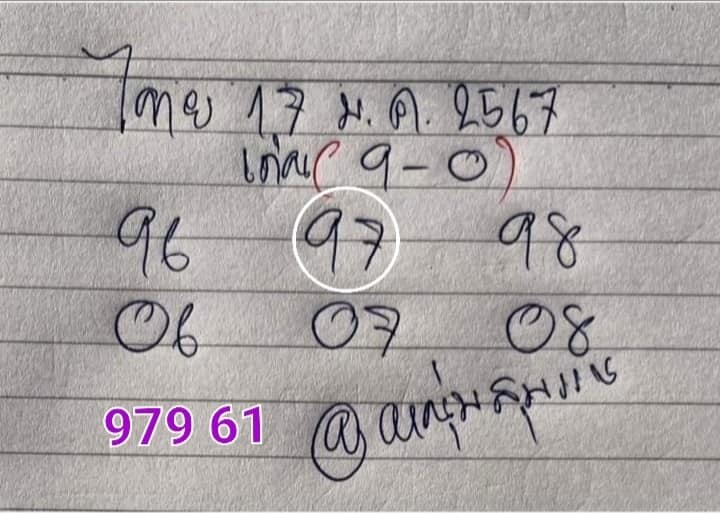 ไทย 17 ม.ค. 2567
เด่น (9-0)
96 97 98
06 07 08
979 61